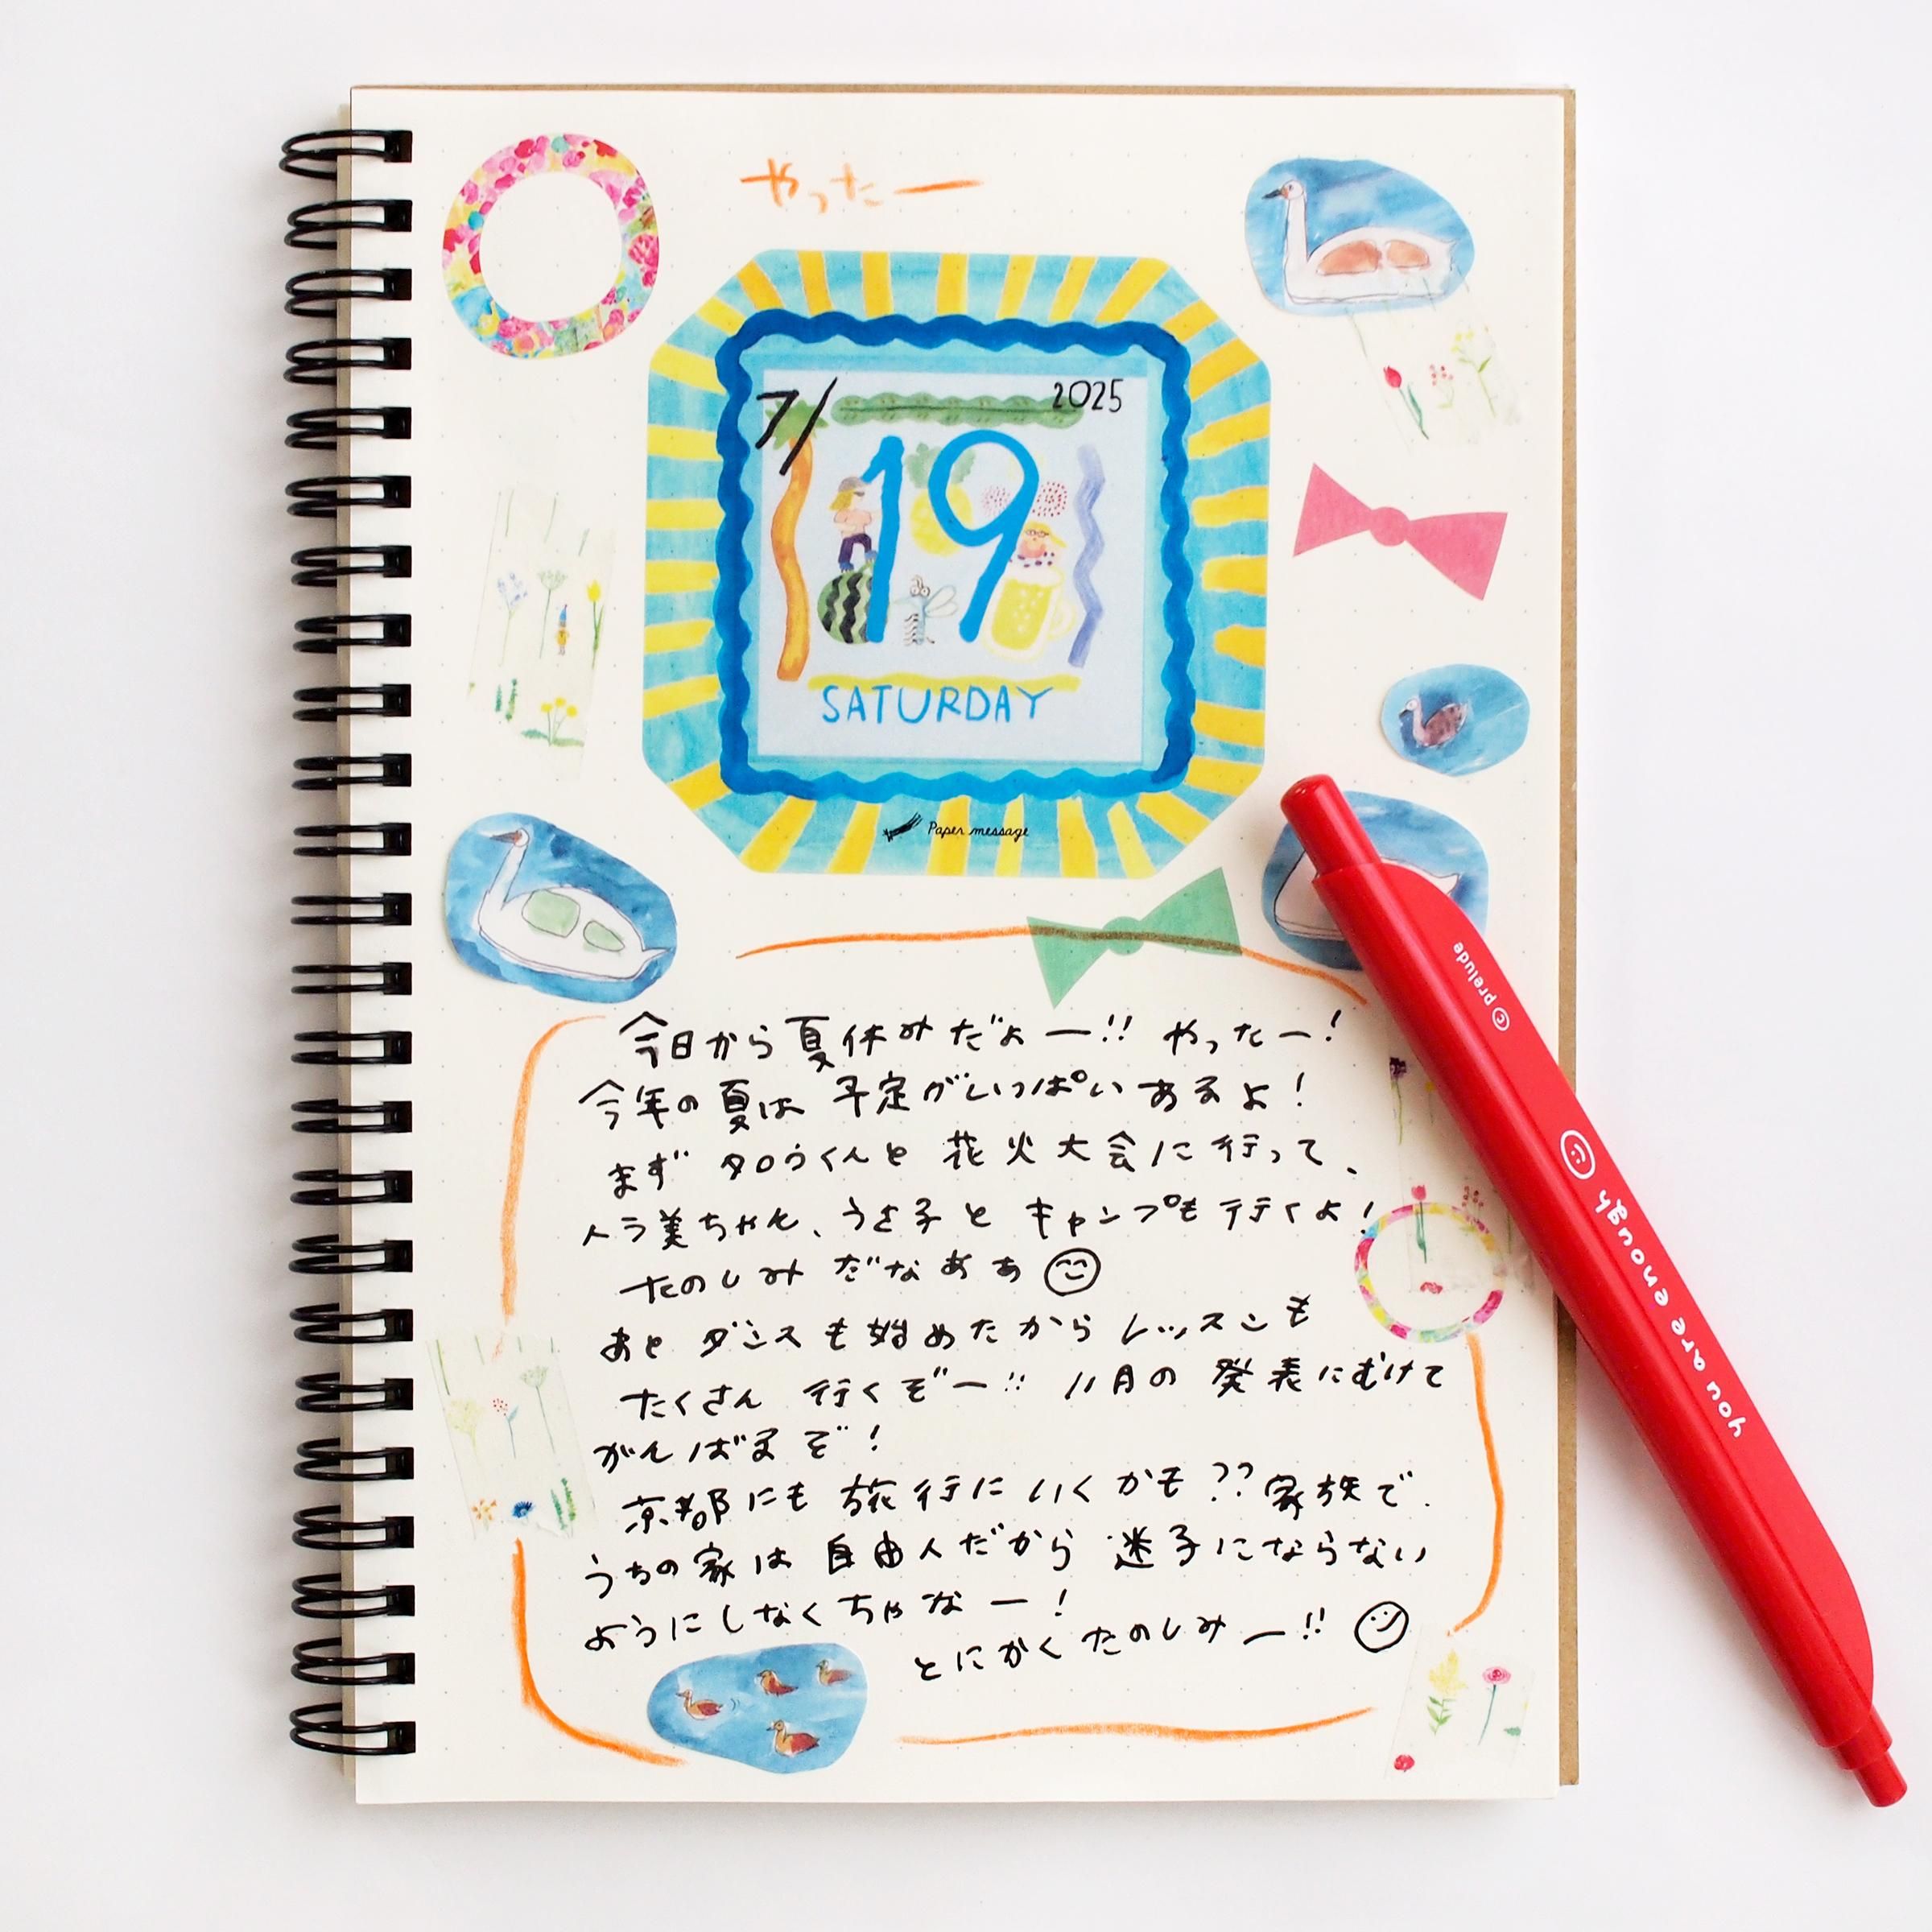 やったー
7/
2025
19
SATURDAY
Paper message
今日から夏休みだよー!! やったー!
今年の夏は予定がいっぱいあるよ!
まず タロウくんと 花火大会に行って、
トラ美ちゃん、うさ子と キャンプも行くよ!
たのしみだなあぁ
あと ダンスも始めたから レッスンも
たくさん 行くぞー!! 11月の 発表にむけて
がんばるぞ!
京都にも 旅行に いくかも?? 家族で.
うちの家は 自由人だから 迷子にならない
ようにしなくちゃなー!
とにかく たのしみー!!
© prelude
you are enough